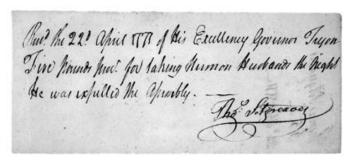 Rec.d the 22.d April 1771 of His Excellency Governor Tryon
Five Pounds Proc. for taking Hermon Husbands the Night
He was expelled the Assembly. —
Tho.s